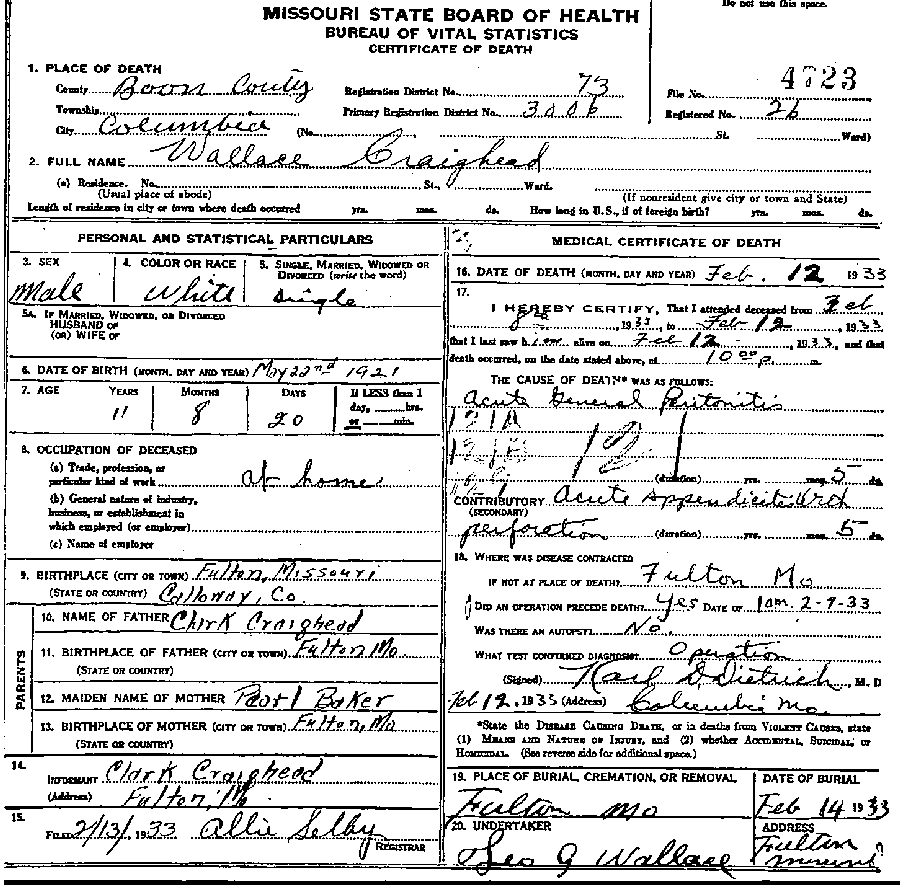 Do not use this space.
MISSOURI STATE BOARD OF HEALTH
BUREAU OF VITAL STATISTICS
CERTIFICATE OF DEATH
1. PLACE OF DEATH
County Boon Couty Registration District No. 73 File No. 4723
Township Primary Registration District No. 3006 Registered No. 26
City Columbia (No. St. Ward)
2. FULL NAME Wallace Craighead
(a) Residence. No. St., Ward.
(Usual place of abode) (If nonresident give city or town and State)
Length of residence in city or town where death occurred yrs. mos. ds. How long in U. S., if of foreign birth? yrs. mos. ds.
PERSONAL AND STATISTICAL PARTICULARS
3. SEX 4. COLOR OR RACE 5. SINGLE, MARRIED, WIDOWED OR
DIVORCED (write the word)
Male White Single
5A. IF MARRIED, WIDOWED, OR DIVORCED
HUSBAND OF
(OR) WIFE OF
6. DATE OF BIRTH (MONTH, DAY AND YEAR) May 22nd 1921
7. AGE YEARS MONTHS DAYS If LESS than 1
day, hrs.
or min.
11 8 20
8. OCCUPATION OF DECEASED
(a) Trade, profession, or
particular kind of work at home
(b) General nature of industry,
business, or establishment in
which employed (or employer)
(c) Name of employer
9. BIRTHPLACE (CITY OR TOWN) Fulton, Missouri
(STATE OR COUNTRY) Calloway, Co.
PARENTS
10. NAME OF FATHER Clark Craighead
11. BIRTHPLACE OF FATHER (CITY OR TOWN) Fulton Mo
(STATE OR COUNTRY)
12. MAIDEN NAME OF MOTHER Pearl Baker
13. BIRTHPLACE OF MOTHER (CITY OR TOWN) Fulton, Mo
(STATE OR COUNTRY)
14.
INFORMANT Clark Craighead
(Address) Fulton, Mo
15.
FILED 2/13/1933 Allie Selby
REGISTRAR
MEDICAL CERTIFICATE OF DEATH
16. DATE OF DEATH (MONTH, DAY AND YEAR) Feb. 12 1933
17.
I HEREBY CERTIFY, That I attended deceased from Feb
8th, 1933, to Feb 12, 1933
that I last saw him alive on Feb 12, 1933, and that
death occurred, on the date stated above, at 10 00 p. m
THE CAUSE OF DEATH* WAS AS FOLLOWS:
Acute General Peritonitis
121A
121
(duration) yrs. mos. 5 ds.
CONTRIBUTORY Acute Appendicitis and
(SECONDARY)
perforation (duration) yrs. mos. 5 ds.
18. WHERE WAS DISEASE CONTRACTED
IF NOT AT PLACE OF DEATH? Fulton Mo
DID AN OPERATION PRECEDE DEATH? Yes DATE OF 1 am. 2-9-33
WAS THERE AN AUTOPSY? No.
WHAT TEST CONFIRMED DIAGNOSIS? Operation
(Signed) Karl D. Dietrich, M. D
Feb 12, 1933 (Address) Columbia Mo
*State the DISEASE CAUSING DEATH, or in deaths from VIOLENT CAUSES, state
(1) MEANS AND NATURE OF INJURY, and (2) whether ACCIDENTAL, SUICIDAL, or
HOMICIDAL. (See reverse side for additional space.)
19. PLACE OF BURIAL, CREMATION, OR REMOVAL DATE OF BURIAL
Fulton Mo Feb 14 1933
20. UNDERTAKER ADDRESS
Geo G Wallace Fulton
Missouri